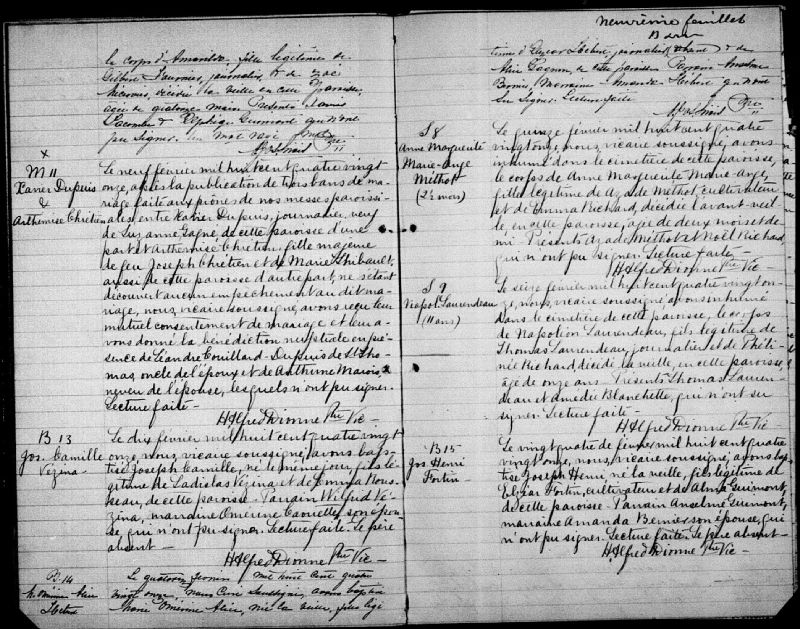 le corps d'Amanda, fille légitime de
Gilbert Fournier, journalier, & de
décédée la veille en cette paroisse,
agée de quatorze mois. Présents Louis
Lacombe & Guimont qui n'ont
pu signer.
Ptre
X
M 11
Xavier Dupuis
&
Arthémise Chrétien
Le neuf février mil huit cent quatre vingt
onze, après la publication de trois bans de ma-
riage faite aux prônes de nos messes paroissi-
ales, entre Xavier Dupuis, journalier, veuf
de Suzanne Gagné de cette paroisse d'une
part et Arthémise Chrétien, fille majeure
de feu Joseph Chrétien et de Marie Thibault,
aussi de cette paroisse d'autre part, ne s'étant
découvert aucun empêchement au dit ma-
riage, nous, vicaire soussigné, avons reçu leur
mutuel consentement de mariage et leur a-
vons donné la bénédiction nuptiale en pré-
sence de Léandre Couillard-Dupuis de St Tho-
mas, oncle de l'époux et de Anthime Marois,
neveu de l'épouse, lesquels n'ont pu signer.
Lecture faite -
H Alfred Dionne Ptre Vic -
B 13
Jos. Camille
Vézina -
Le dix février mil huit cent quatre vingt
onze, nous, vicaire soussigné, avons bap-
tisé Joseph Camille, né le même jour, fils lé-
gitime de Ladislas Vézina et de Emma Rous-
seau, de cette paroisse - Parrain Wilfrid Vé-
zina, marraine Amérine Caouette, son épou-
se, qui n'ont pu signer. Lecture faite. Le père
absent -
H Alfred Dionne Ptre Vic -
B. 14
M. Omérine Alice
Hébert
Le quatorze février mil huit cent quatre
vingt onze, nous Curé soussigné, avons baptisé
Marie Omérine Alice, née la veille, fille légi
neuvième feuillet
time d'Elzear Hébert, journalier, absent & de
Alice Gagnon, de cette paroisse. Parrain Anselme
Bernier, Marraine Amanda Hébert qui n'ont
su signer. Lecture faite
Ptre
S 8
Anne Marguerite
Marie-Ange
Méthot
(2½ mois)
Le quinze février mil huit cent quatre
vingt onze, nous, vicaire soussigné, avons
inhumé dans le cimetière de cette paroisse,
le corps de Anne Marguerite Marie-Ange,
fille légitime de Azade Méthot, cultivateur
et de Emma Richard, décédée l'avant veil-
le, en cette paroisse, agée de deux mois et de-
mi - Présents Azade Méthot et Noël Richard,
qui n'ont pu signer. Lecture faite -
H Alfred Dionne Ptre Vic -
S 9
Napol. Laurendeau
(11 ans)
Le seize février mil huit cent quatre vingt on-
ze, nous, vicaire soussigné avons inhumé
dans le cimetière de cette paroisse, le corps
de Napoléon Laurendeau, fils légitime de
Thomas Laurendeau, journalier et de
Richard, décédé la veille, en cette paroisse,
agé de onze ans - Présents Thomas Lauren-
deau et Amédée Blanchette, qui n'ont su
signer. Lecture faite -
H Alfred Dionne Ptre Vic -
B 15
Jos Henri
Fortin
Le vingt quatre de février mil huit cent quatre
vingt onze, nous, vicaire soussigné, avons bap-
tisé Joseph Henri, né la veille, fils légitime de
Elzéar Fortin, cultivateur et de Alma Guimont,
de cette paroisse - Parrain Anselme Guimont,
marraine Amanda Bernier son épouse, qui
n'ont pu signer. Lecture faite. Le père absent -
H. Alfred Dionne Ptre Vic -